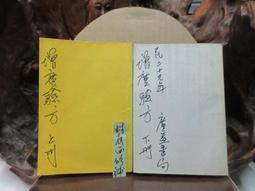 增廣驗方 上冊
民二十九年
增廣驗方 下冊
廣益書局